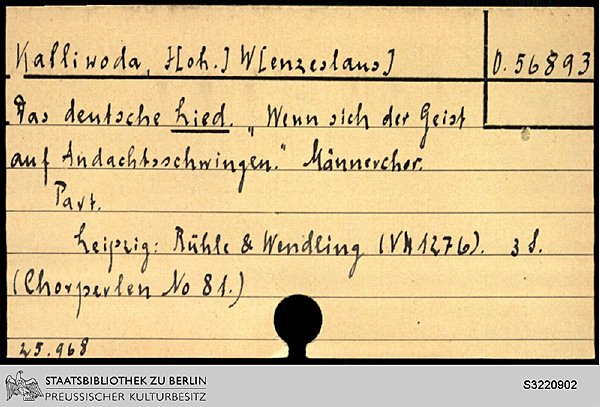 Kalliwoda, J[oh.] W[enzeslaus]
O. 56893
Das deutsche Lied. „Wenn sich der Geist
auf Andachtsschwingen." Männerchor.
Part.
Leipzig: Rühle & Wendling (VN 1276). 3 S.
(Chorperlen No 81.)
25.968
STAATSBIBLIOTHEK ZU BERLIN
PREUSSISCHER KULTURBESITZ
S3220902